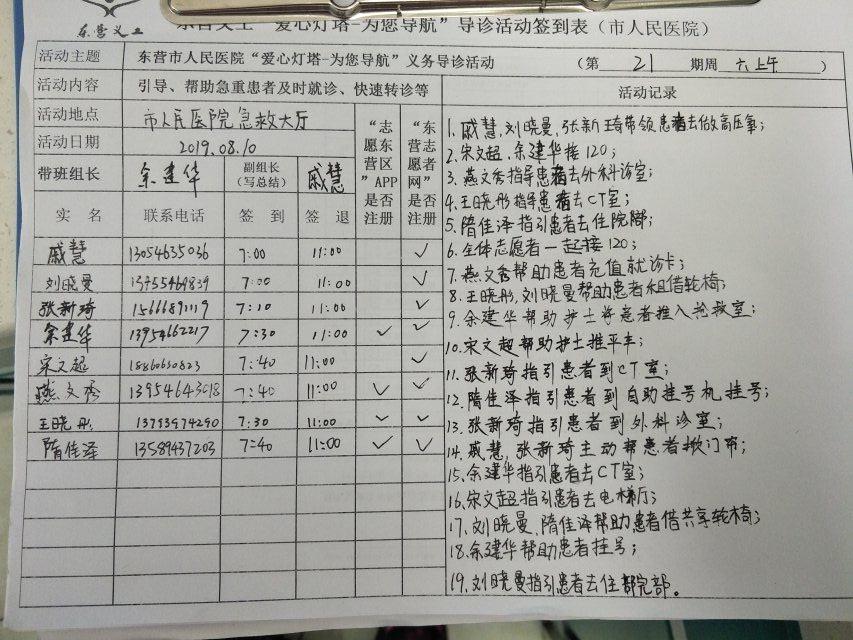 东营义工
东营义工“爱心灯塔-为您导航”导诊活动签到表（市人民医院）
活动主题 东营市人民医院“爱心灯塔-为您导航”义务导诊活动 （第 21 期周 六上午 ）
活动内容 引导、帮助急重患者及时就诊、快速转诊等
活动地点 市人民医院急救大厅
活动日期 2019.08.10
带班组长 余建华 副组长（写总结） 戚慧
“志愿东营区”APP是否注册
“东营志愿者网”是否注册
实 名 联系电话 签 到 签 退
戚慧 13054635036 7:00 11:00 ✓
刘晓曼 13755469839 7:00 11:00 ✓
张新琦 15666891119 7:10 11:00 ✓
余建华 13954662217 7:30 11:00 ✓ ✓
宋文超 18860630823 7:40 11:00 ✓
燕文秀 13954643018 7:40 11:00 ✓ ✓
王晓彤 13793974290 7:30 11:00 ✓ ✓
隋佳泽 13589437203 7:40 11:00 ✓ ✓
活动记录
1、戚慧,刘晓曼,张新琦带领患者去做高压氧;
2、宋文超、余建华接120;
3、燕文秀指导患者去外科诊室;
4、王晓彤指导患者去CT室;
5、隋佳泽指引患者去住院部;
6、全体志愿者一起接120;
7、燕文秀帮助患者充值就诊卡;
8、王晓彤,刘晓曼帮助患者租借轮椅;
9、余建华帮助护士将患者推入抢救室;
10、宋文超帮助护士推平车;
11、张新琦指引患者到CT室;
12、隋佳泽指引患者到自助挂号机挂号;
13、张新琦指引患者到外科诊室;
14、戚慧,张新琦主动帮患者掀门帘;
15、余建华指引患者去CT室;
16、宋文超指引患者去电梯厅;
17、刘晓曼、隋佳泽帮助患者借共享轮椅;
18、余建华帮助患者挂号;
19、刘晓曼指引患者去住院部。